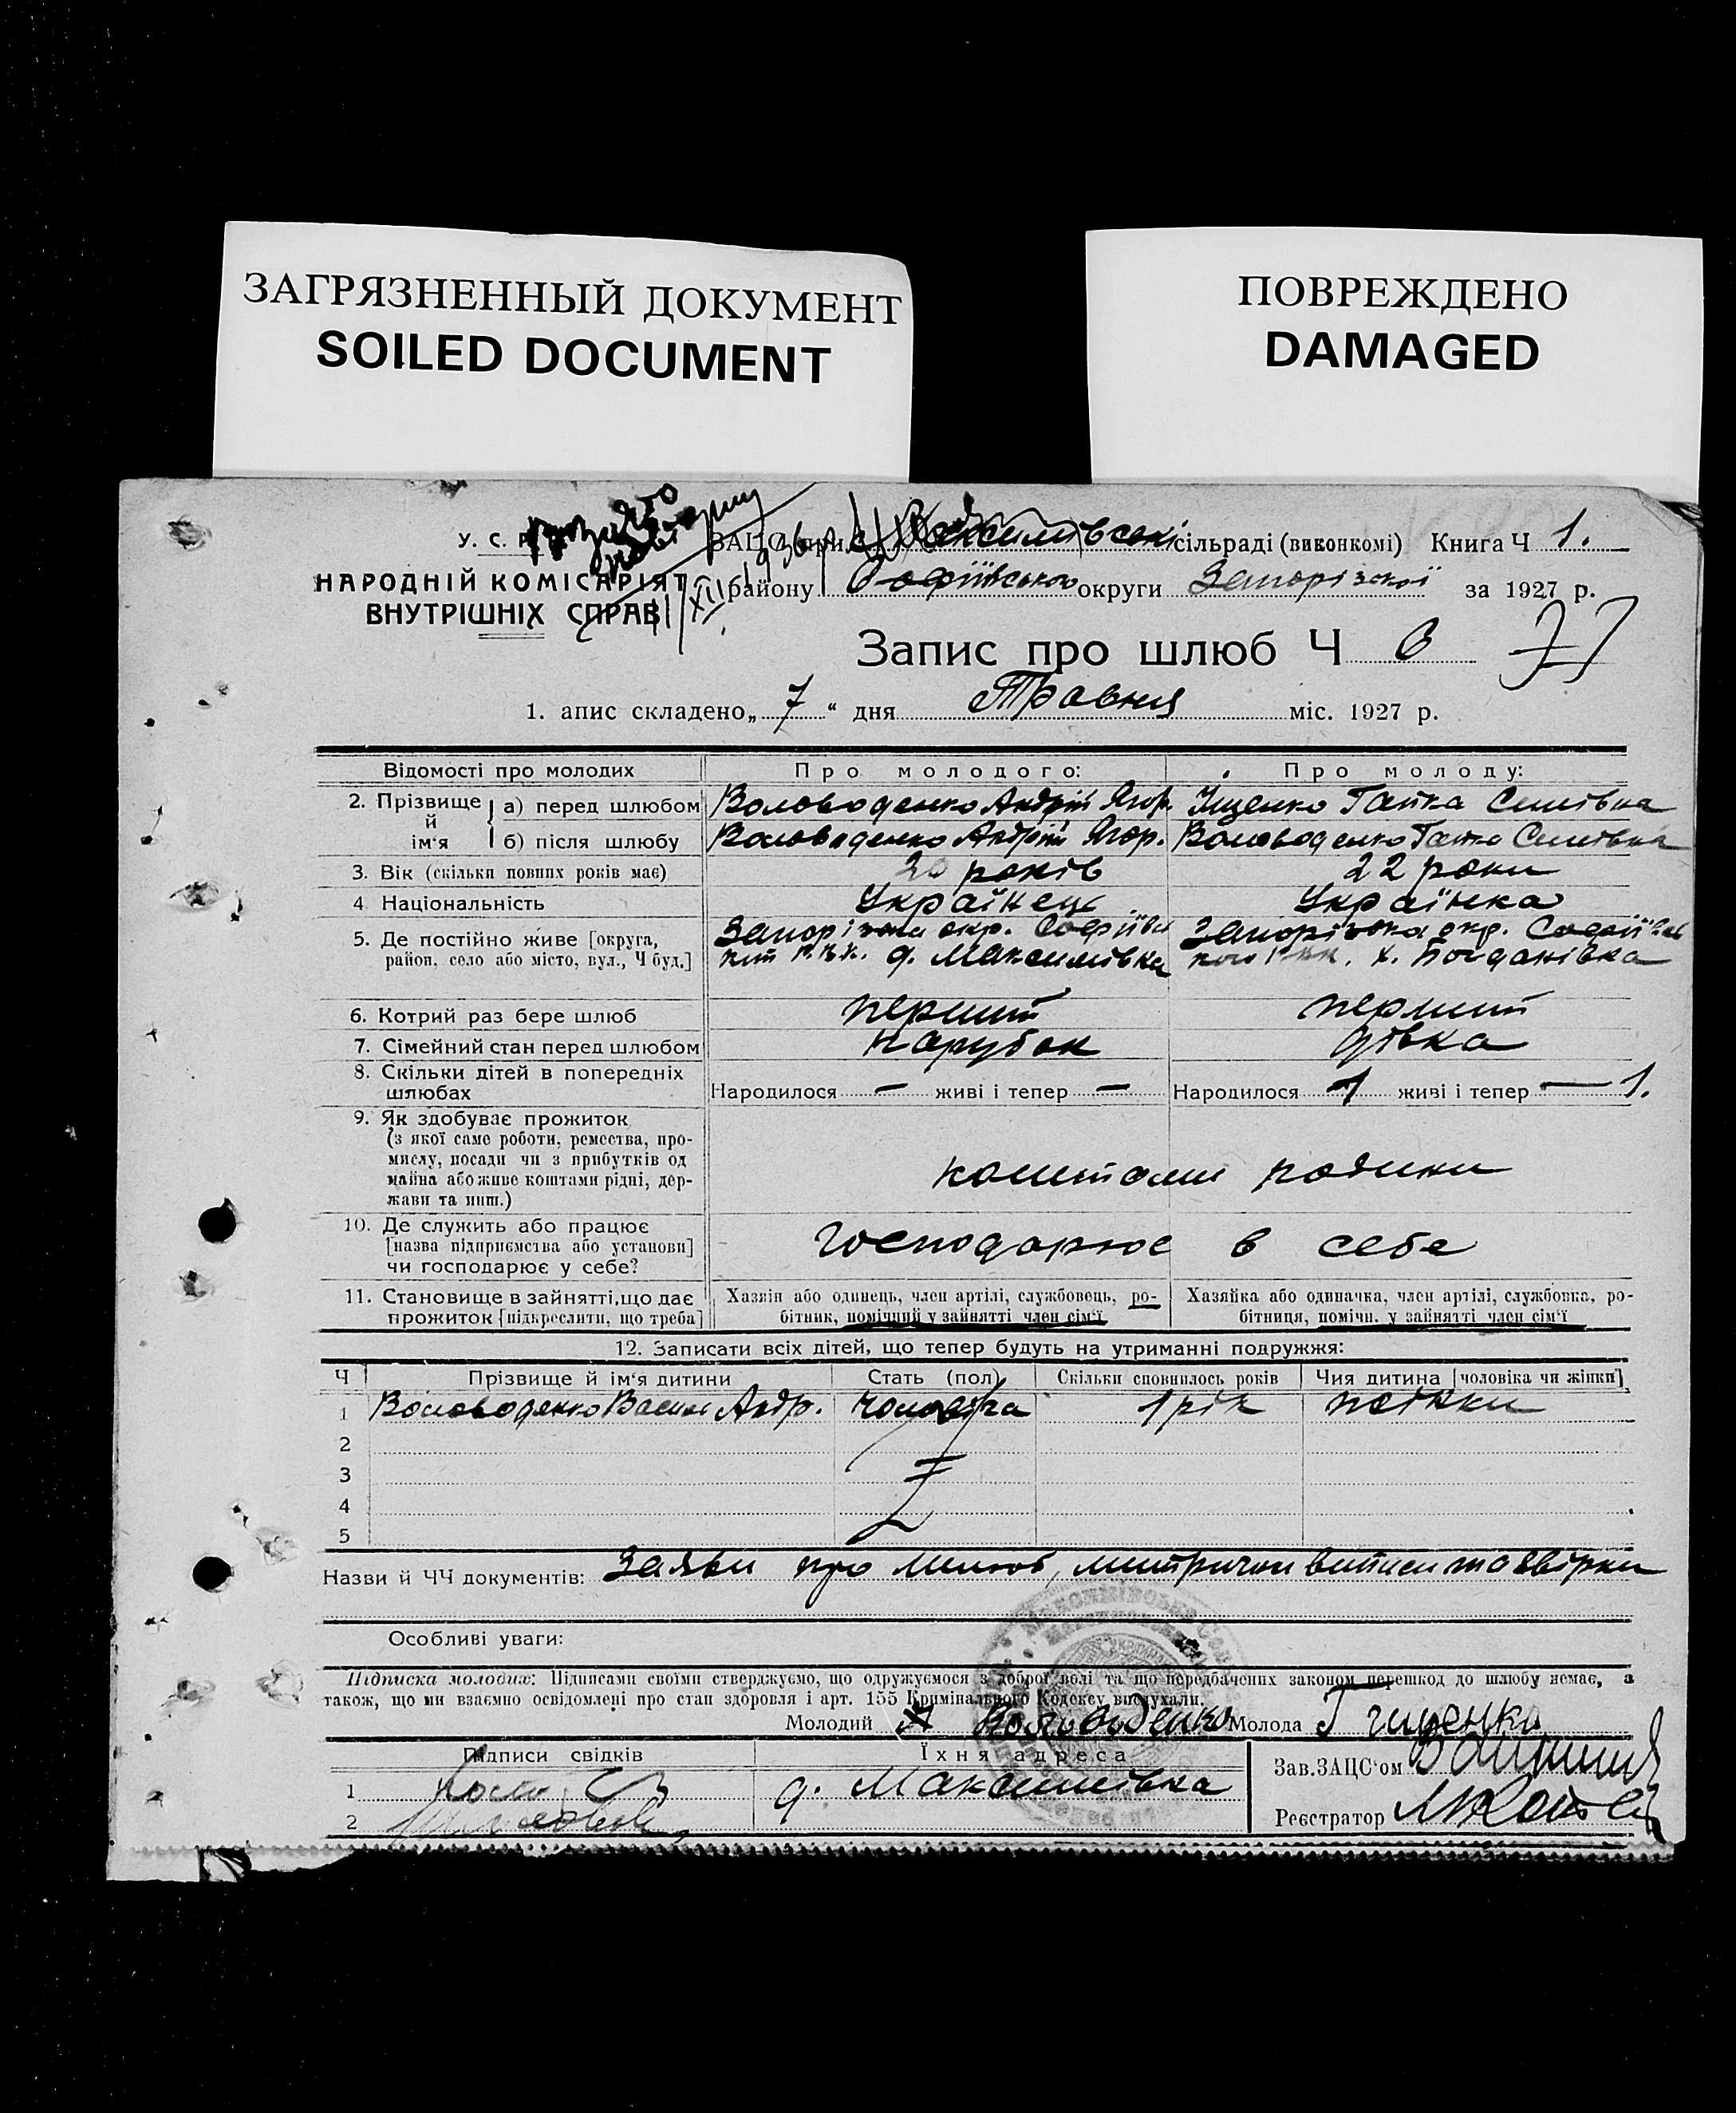 ЗАГРЯЗНЕННЫЙ ДОКУМЕНТ
SOILED DOCUMENT
ПОВРЕЖДЕНО
DAMAGED
У. С. Р.
НАРОДНІЙ КОМІСАРІЯТ
ВНУТРІШНІХ СПРАВ
ЗАЦС при Максимівській сільраді (виконкомі) Книга Ч 1.
району Софіївського округи Запорізької за 1927 р.
Запис про шлюб Ч 6 77
1. апис складено „ 7 “ дня Травня міс. 1927 р.
Відомості про молодих Про молодого: Про молоду:
2. Прізвище й ім‘я
а) перед шлюбом Воловоденко Андрій Ягор. Іщенко Гапка Семівна
б) після шлюбу Воловоденко Андрій Ягор. Воловоденко Гапка Семівна
3. Вік (скільки повних років має) 20 років 22 роки
4 Національність Українець Українка
5. Де постійно живе [округа, Запорізька окр. Софіївс Запорізька окр. Софіївс
район, село або місто, вул., Ч буд.] кий Р.В.К. д. Максимівка х. Богданівка
6. Котрий раз бере шлюб перший перший
7. Сімейний стан перед шлюбом парубок дівка
8. Скільки дітей в попередніх
шлюбах Народилося — живі і тепер — Народилося 1 живі і тепер — 1.
9. Як здобуває прожиток
(з якої само роботи, ремества, про-
мислу, посади чи з прибутків од
майна або живе коштами рідні, дер-
жави та инш.)
коштами родини
10. Де служить або працює
[назва підприємства або установи]
чи господарює у себе?
господарює в себе
11. Становище в зайнятті, що дає
прожиток [підкреслити, що треба]
Хазяїн або одинець, член артілі, службовець, ро-
бітник, помічний у зайнятті член сім‘ї
Хазяйка або одиначка, член артілі, службовка, ро-
бітниця, помічн. у зайнятті член сім‘ї
12. Записати всіх дітей, що тепер будуть на утриманні подружжя:
Ч Прізвище й ім‘я дитини Стать (пол) Скільки сповнилось років Чия дитина [чоловіка чи жінки]
1 Воловоденко Васил Андр. чоловіча 1 рік
2
3
4
5
Назви й ЧЧ документів: Заяви про шлюб, метричні виписи та звірки
Особливі уваги:
Підписка молодих: Підписами своїми стверджуємо, що одружуємося з доброї волі та що передбачених законом перешкод до шлюбу немає, а
також, що ми взаємно освідомлені про стан здоровля і арт. 155 Кримінального Кодексу вислухали.
Молодий А Воловоденко Молода Г Іщенко
Підписи свідків Їхня адреса Зав. ЗАЦС‘ом
1 д. Максимівка
2 Реєстратор